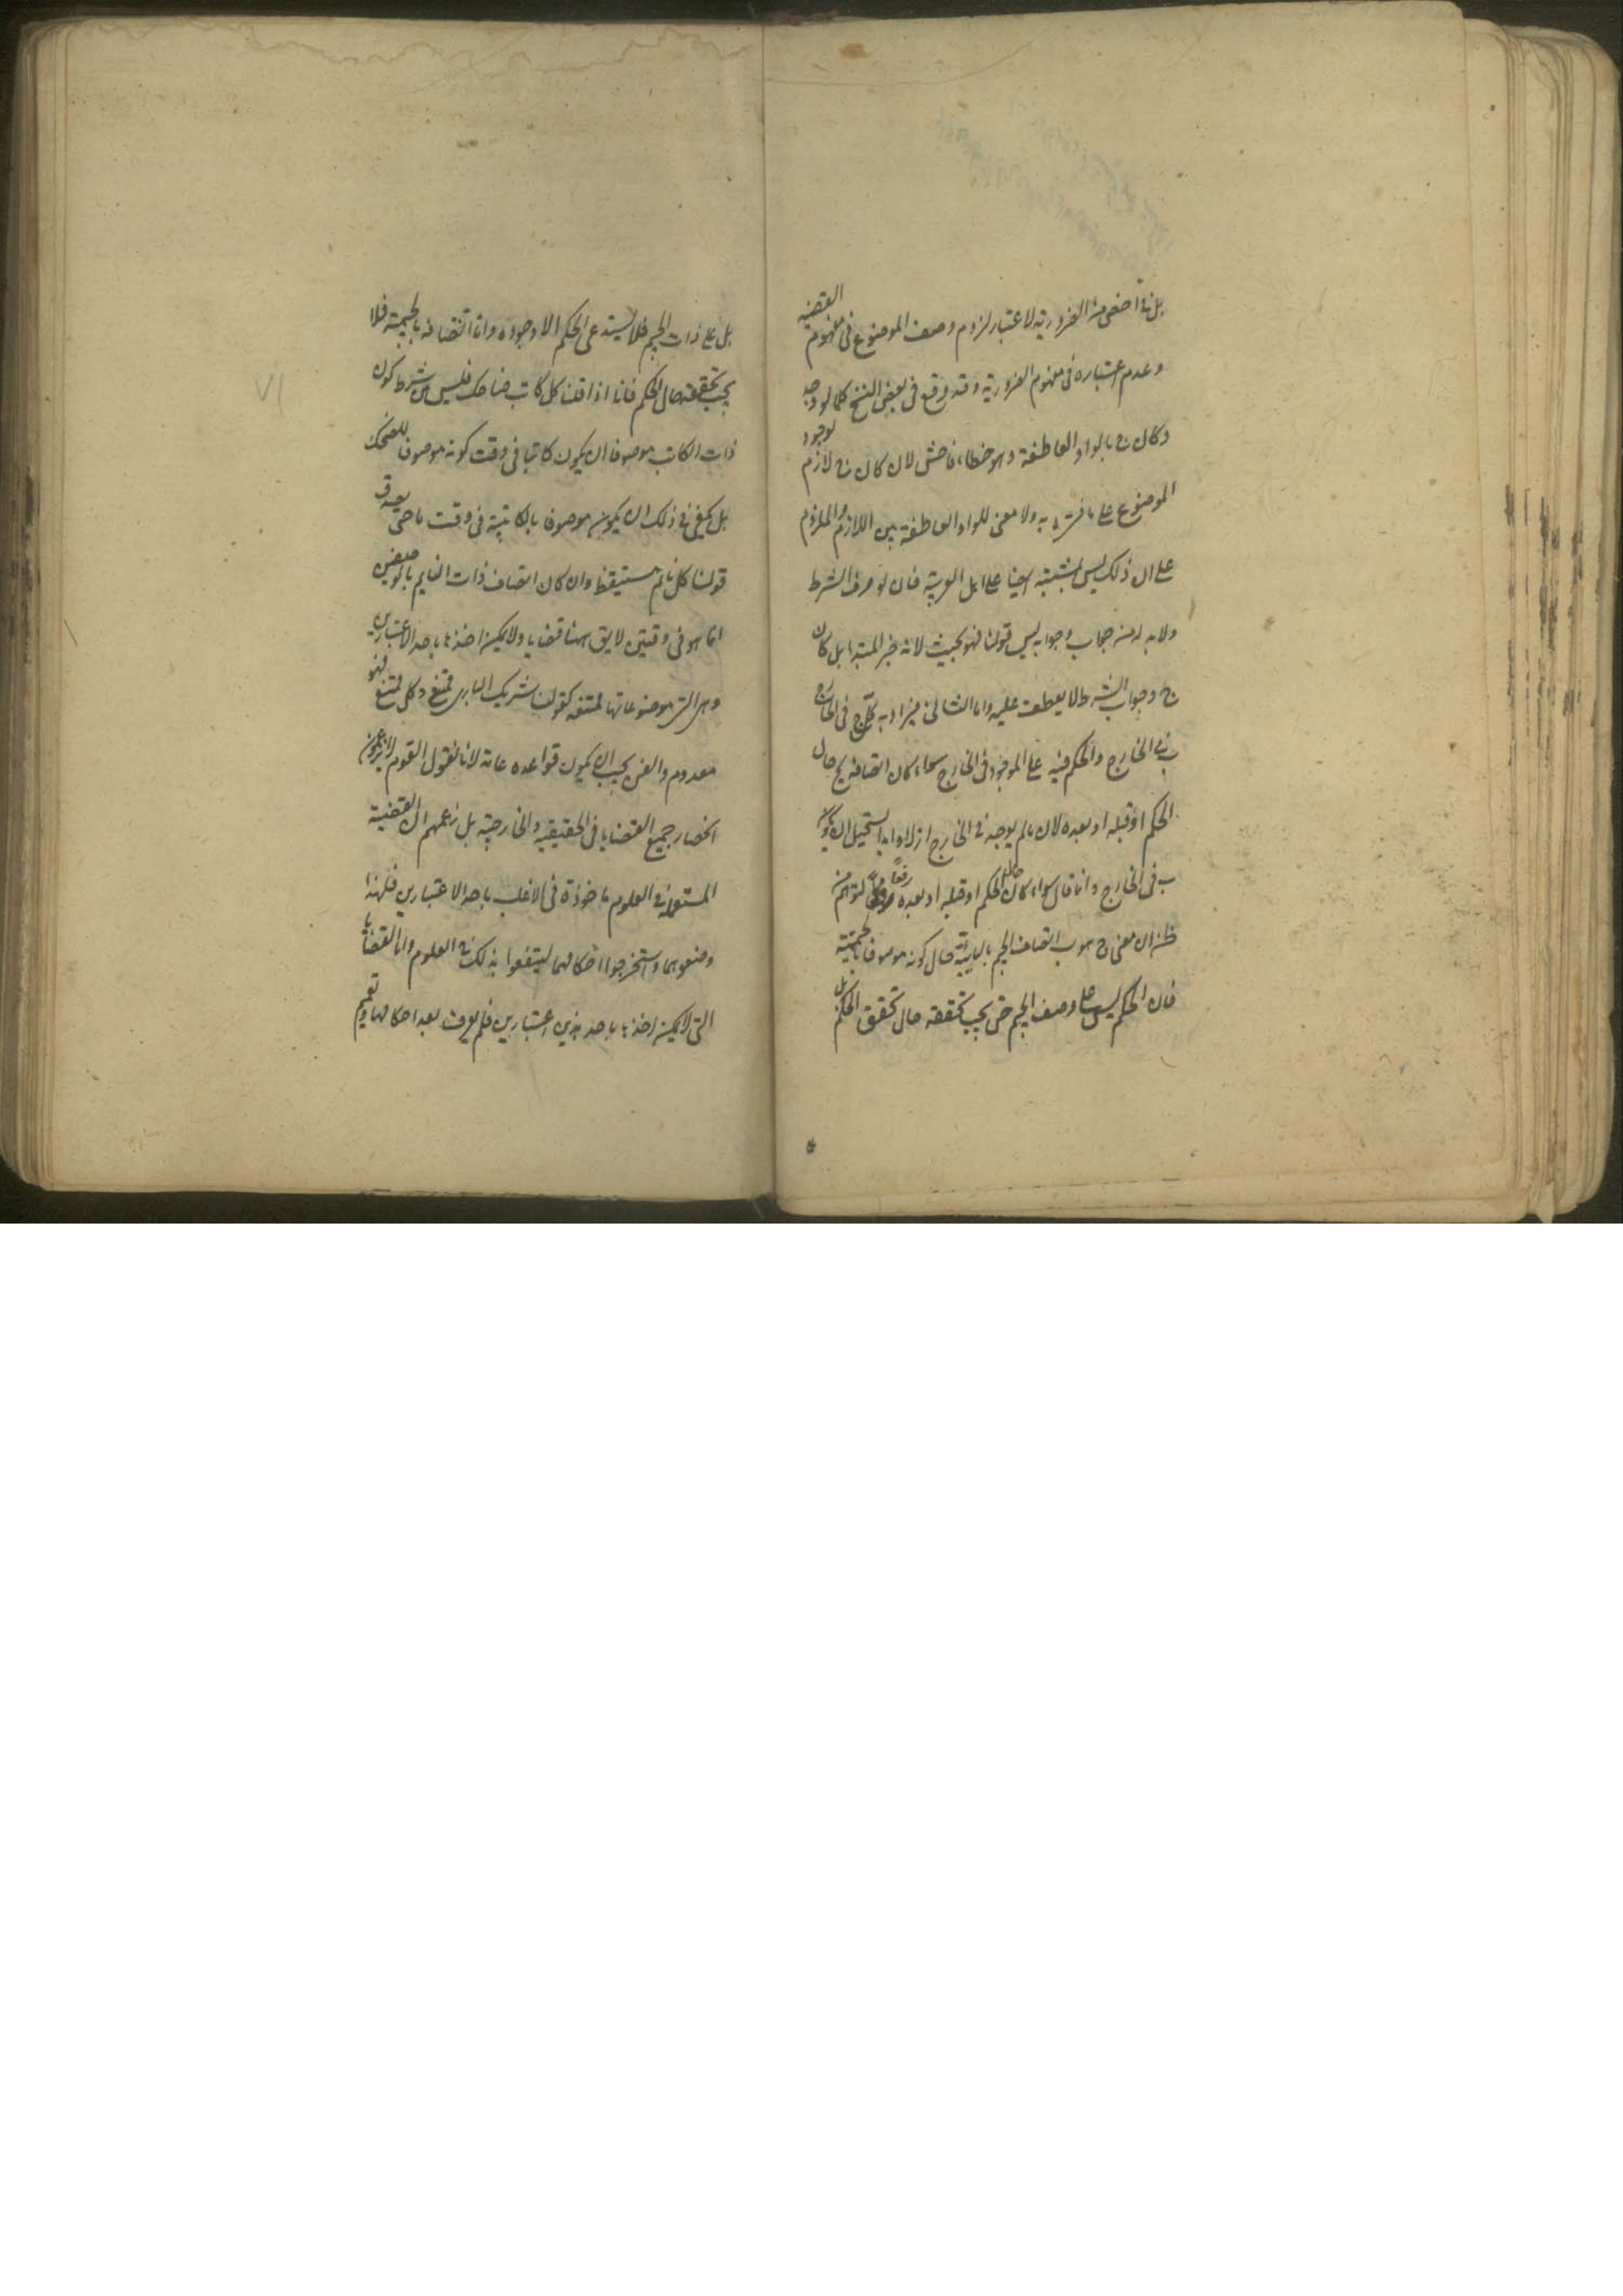 بل انها اخص من الضرورية لاعتبار لزوم وصف الموضوع فى مفهوم القضية
وعدم اعتباره فى مفهوم الضرورية وقد وقع فى بعض النسخ كلما لو وجد
وكان ج بالواو العاطفة وهو خطاء فاحش لان كان ج لازم لوجود
الموضوع على ما فسره به ولا معنى للواو العاطفة بين اللازم والملزوم
على ان ذلك ليس بمشتبه ايضا على اهل العربية فان لو حرف الشرط
ولا بد له من جواب وجوابه ليس قولنا فهو بحيث لانه خبر المبتدا بل كان
ج وجواب الشرط لا يعطف عليه واما الثانى فيراد به كل ج فى الخارج
ب فى الخارج والحكم فيه على الموجود فى الخارج سواء كان اتصافه بج حال
الحكم او قبله او بعده لان ما لم يوجد فى الخارج ازلا وابدا يستحيل ان يكون
ب فى الخارج وانما قال سواء كان حال الحكم او قبله او بعده رفعا لتوهم من
ظن ان معنى ج هو ب اتصاف الجيم بالبائية حال كونه موصوفا بالجيمية
فان الحكم ليس على وصف الجيم حتى يجب تحققه حال تحقق الحكم بل
بل على ذات الجيم فلا يستدعى الحكم الا وجوده واما اتصافه بالجيمية فلا
يجب تحققه حال الحكم فانا اذا قلنا كل كاتب ضاحك فليس من شرط كون
ذات الكاتب موصوفا ان يكون كاتبا فى وقت كونه موصوفا بالضحك
بل يكفى فى ذلك ان يكون موصوفا بالكاتبية فى وقت ما حتى يصدق
قولنا كل نائم مستيقظ وان كان اتصاف ذات النايم بالوصفين
انما هو فى وقتين لايق ههنا قضايا ولا يمكن اخذها باحد الاعتبارين
وهى التى موضوعاتها ممتنعه كقولنا شريك البارى ممتنع وكل ممتنع فهو
معدوم والفن يجب ان يكون قواعده عامة لانا نقول القوم لا يزعمون
انحصار جميع القضايا فى الحقيقية والخارجية بل زعمهم ان القضية
المستعملة فى العلوم ماخوذة فى الاغلب باحد الاعتبارين فلهذا
وضعوهما واستخرجوا احكامهما لينتفعوا بذلك فى العلوم واما القضايا
التى لا يمكن اخذها باحد هذين اعتبارين فلم يعرف بعد احكامها وتعميم